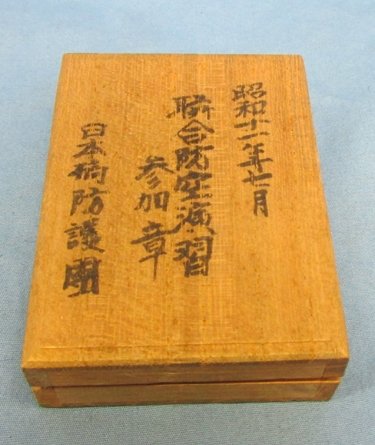 昭和十一年七月
聯合防空演習
参加章
日本橋防護團